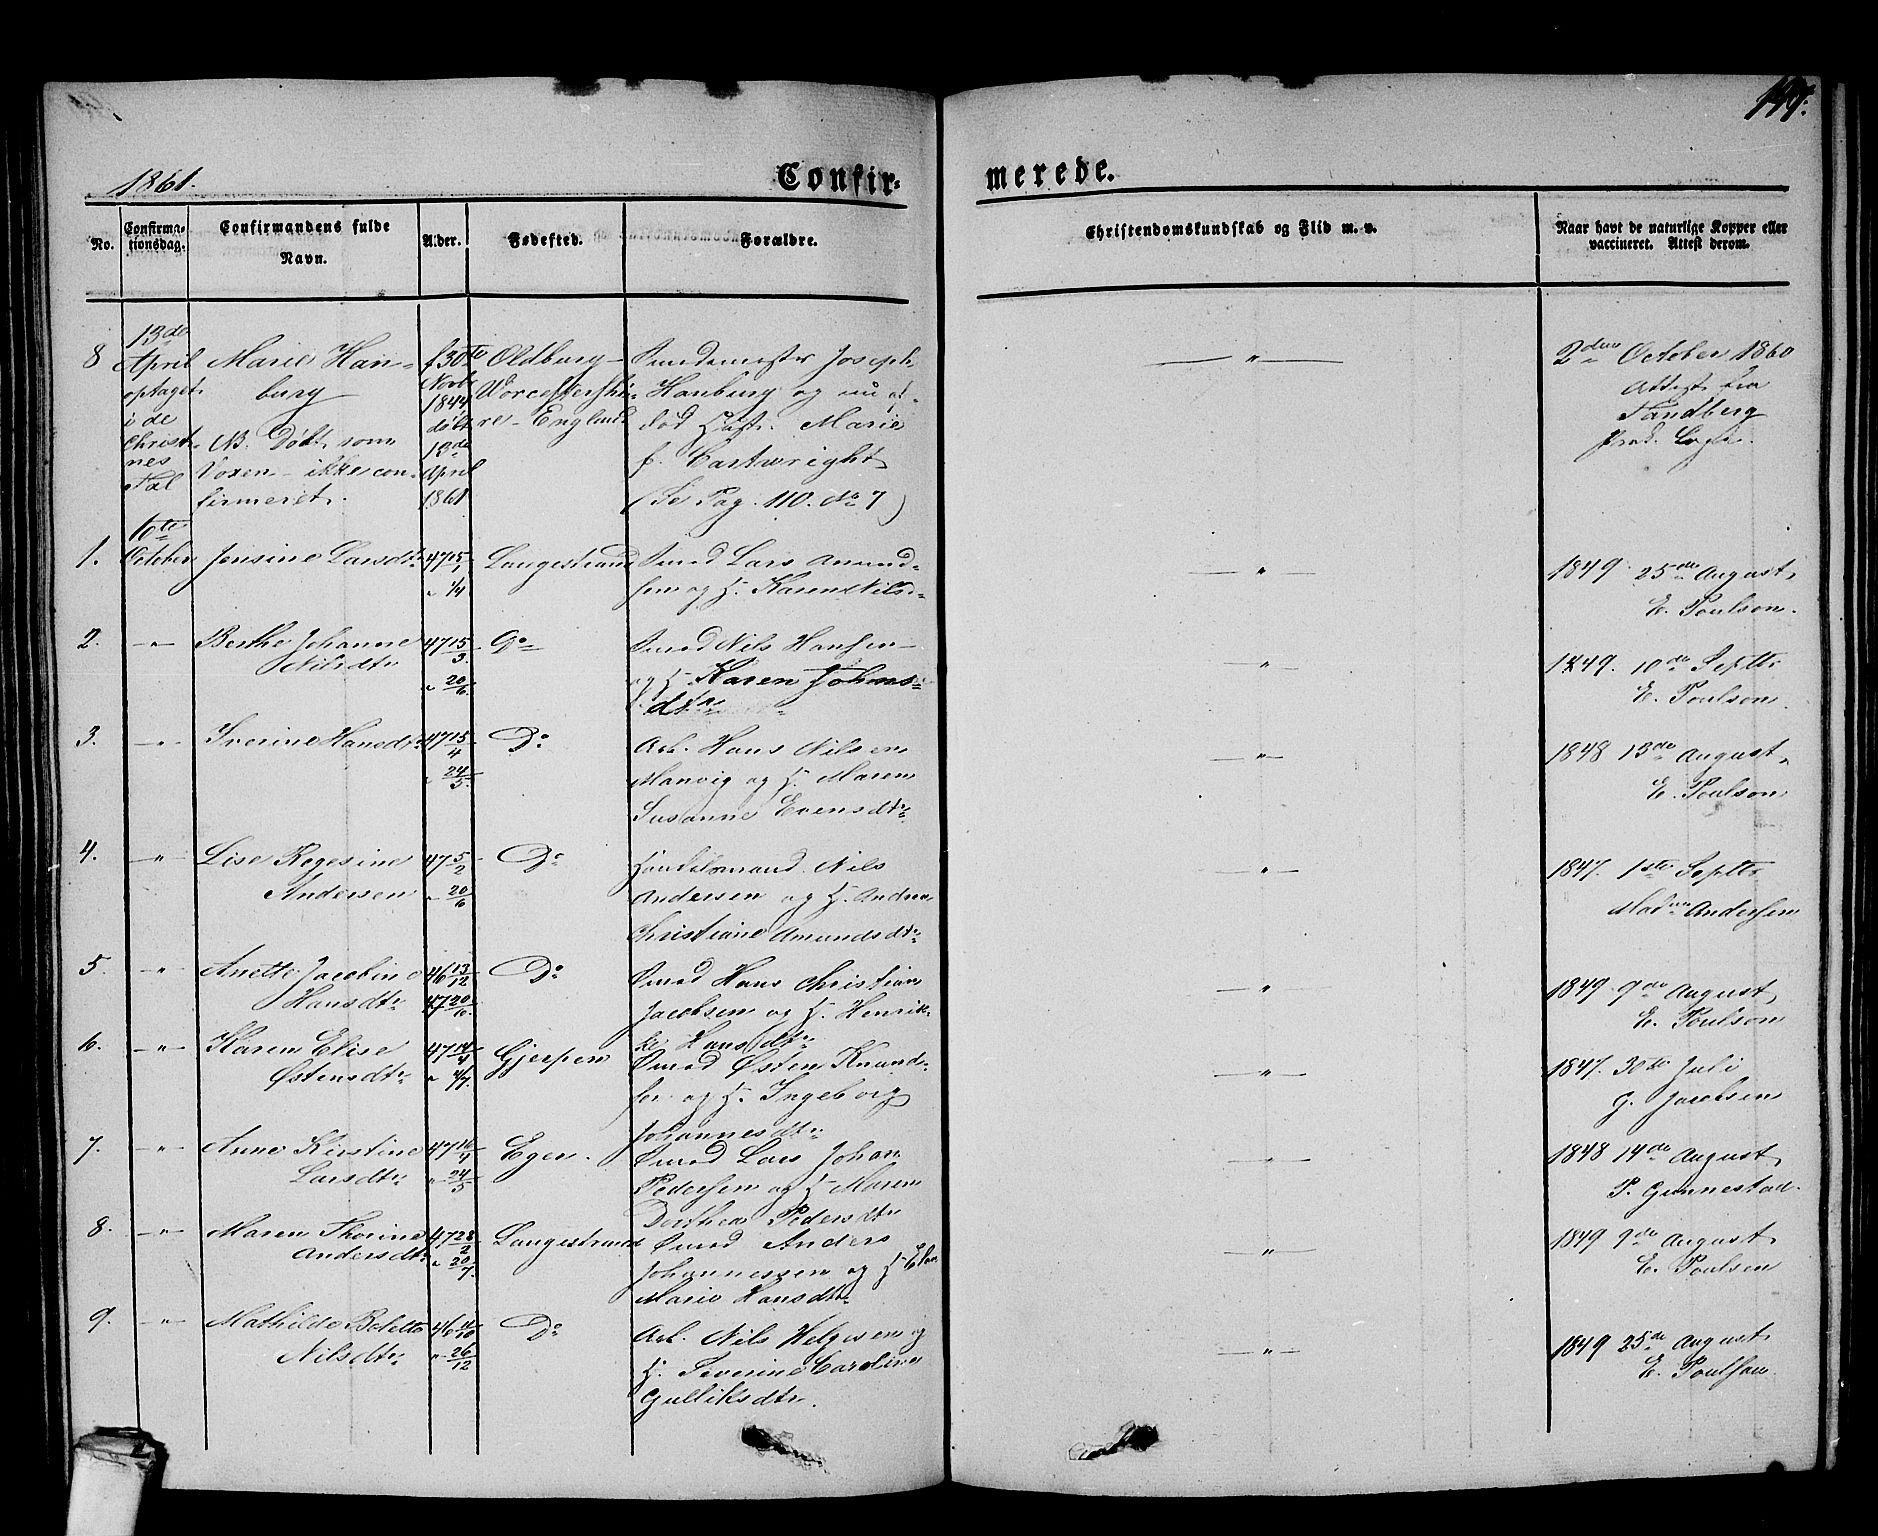 1861.
Confir=
merede.
No.
Confirma=
tionsdag.
Confirmandens fulde
Navn.
Alder.
Fødested.
Forældre.
Christendomskundskab og Flid m. v.
Naar havt de naturlige Kopper eller
vaccineret. Attest derom.
8
13de
April
optaget
i de
Christ-
nes
Tal
Marie Han-
burg
NB. Døbt som
Voxen - ikke con-
firmeret.
f 30te
Novb.
1844
døbt
13de
April
1861
Oldbury -
Worcestershi-
re - England
Joseph
Hanburg og nu af-
død Hust. Marie
f. Cartwright
(Se Pag. 110. No 7)
"
2den October 1860
Attest fra
Tandberg
1.
10de
October
Jensine Larsdtr
47 15/1
" 1/4
Langestrand
Smed Lars Amund-
sen og H. Karen Nilsd.
"
1849. 25de August
E. Poulson.
2.
"
Berthe Johanne
Nilsdtr
47 15/3
" 20/6
Do
Smed Nils Hansen
og H. Karen Johns=
dtr
"
1849. 10de Septbr
E. Poulson.
3.
"
Iverine Hansdtr
47 15/4
" 24/5.
Do
Arb. Hans Nilsen
Manvig og H. Maren
Susanne Evensdtr
"
1848 13de August
E. Poulson
4.
"
Lise Regesine
Andersen
47 5/2
" 20/6
Do
Handelsmand Nils
Andersen og H. Andrea
Christiane Amundsdtr
"
1847. 1ste Septbr
Madm Andersen
5.
"
Anette Jacobine
Hansdtr
46 13/12
47 20/6.
Do
Smed Hans Christian
Jacobsen og H. Henrik-
ke Hansdtr
"
1849. 9de August
E. Poulson
6.
"
Karen Elise
Østensdtr
47 14/4
" 4/7.
Gjerpen
Smed Østen Knuds-
sen og H. Ingeborg
Johannesdtr
"
1847. 30te Juli
G. Jacobsen
7.
"
Anne Kirstine
Larsdtr
47 16/4
" 24/5
Eger.
Smed Lars Johan
Pedersen og H. Maren
Dorthea Pedersdtr
"
1848 14de August
P. Gunnestad.
8.
"
Maren Thorine
Andersdtr
47 28/2
" 20/7.
Langestrand
Smed Anders
Johannessen og H. Elen
Marie Hansdtr
"
1849 9de August
E. Poulsen
9.
"
Mathilde Bolette
Nilsdtr
46 11/10
" 26/12
Do
Arb. Nils Helgesen og
H. Severine Caroline
Gulliksdtr.
"
1849 25de August
E. Poulsen